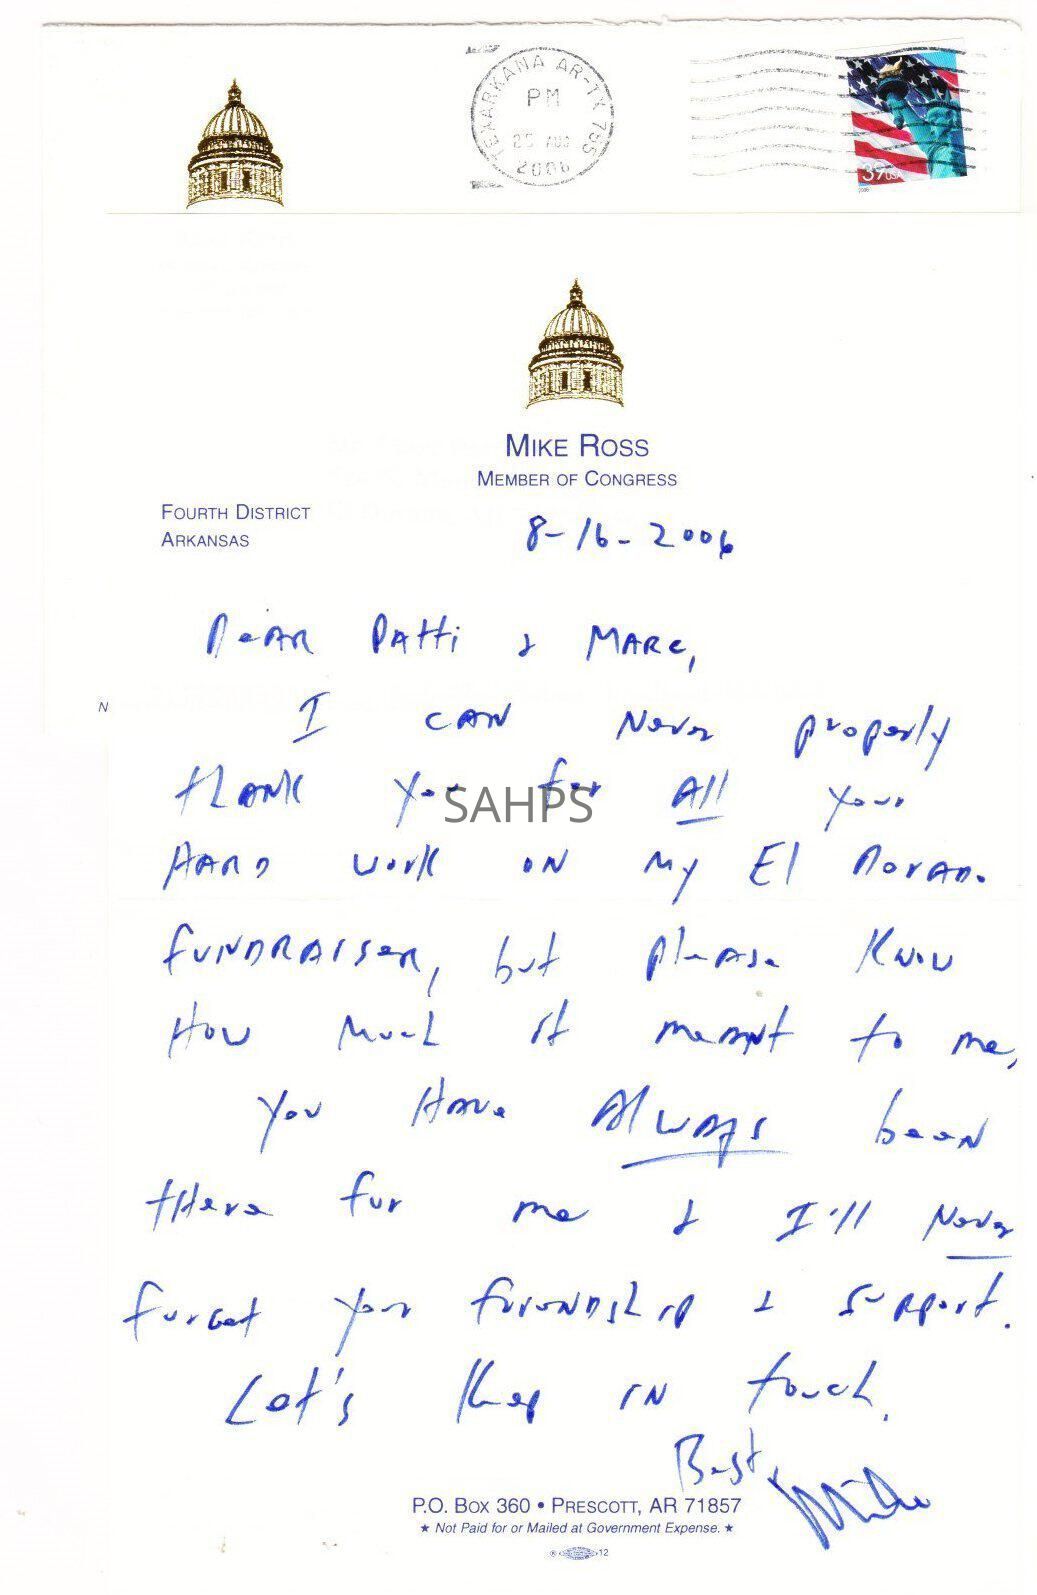 TEXARKANA AR-TX 755
PM
25 AUG
2006
39 USA
2006
MIKE ROSS
MEMBER OF CONGRESS
FOURTH DISTRICT
ARKANSAS
8-16-2006
Dear Patti & Marc,
N
I can never properly
thank you for All your
SAHPS
hard work on my El Dorado
fundraiser, but please know
how much it meant to me,
You have Always been
there for me & I'll Never
forget your friendship & support.
Let's keep in touch.
Best,
Mike
P.O. BOX 360 • PRESCOTT, AR 71857
★ Not Paid for or Mailed at Government Expense. ★
12